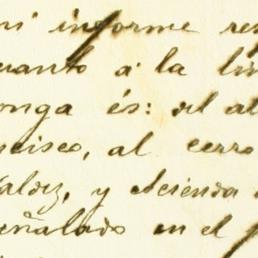 mi informe res
cuanto á la lin
onga és: del al
ncisco, al cerro
Valdez, y atienda
señalado en el p